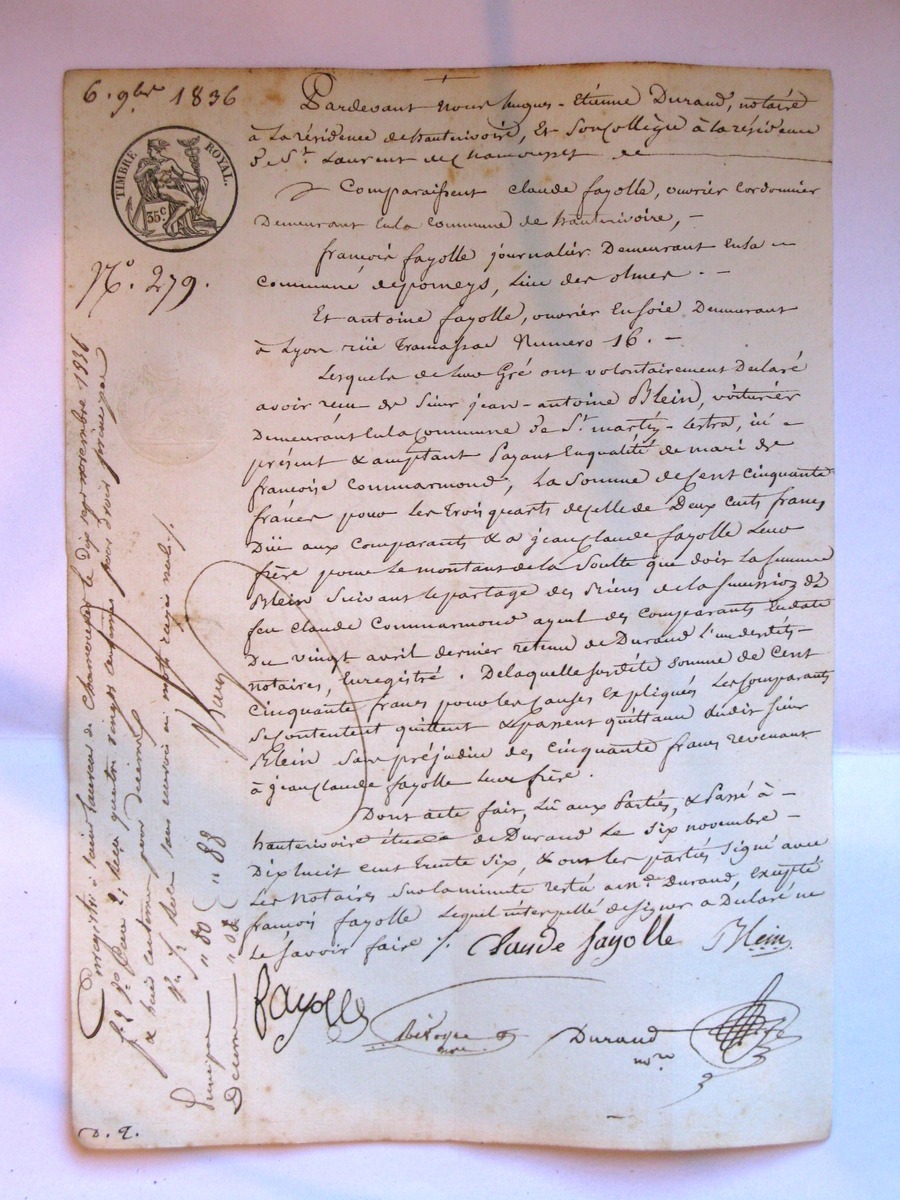 6. 9bre 1836
TIMBRE ROYAL.
35 c
No. 279.
Pardevant nous hugues-Etienne Durand, notaire
à La résidence de hauterivoire, Et Son Collègue à la résidence
de St. Laurent de Chamousset
Comparaissent Claude fayolle, ouvrier Cordonnier
Demeurant En la Commune de hauterivoire, -
françois fayolle journalier Demeurant En la -
Commune de pomeys, Lieu des olmes. -
Et antoine fayolle, ouvrier En soie Demeurant
à Lyon rüe Tramassac Numero 16. -
Lesquels de leur Gré ont volontairement Déclaré
avoir reçu de Sieur jean-antoine Blein, voiturier
Demeurant En la Commune de St. martin-Lestra, ici -
présent & acceptant Payant En qualité de mari de
françoise Commarmond, La Somme de Cent Cinquante
francs pour Les Trois quarts de Celle de Deux Cents francs
Düe aux Comparants & a jean Claude fayolle Leur
frère pour Le montant de la Soulte que doit La femme
Blein Suivant le partage des Biens de la Succession de
feu Claude Commarmond ayeul des Comparants En date
Du vingt avril dernier retenu de Durand L'un desdits -
notaires, Enregistré. De laquelle susdite somme de Cent
Cinquante francs pour les Causes Expliqués Les Comparants
Se Contentent quittent & passent quittance audit Sieur
Blein Sans préjudice des Cinquante francs revenant
à jean Claude fayolle Leur frère.
Dont acte fait, Lû aux Parties, & Passé à -
hauterivoire étude de Durand Le Six novembre -
Dix huit Cent Trente Six, & ont les parties Signé avec
Les Notaires Sur la minute resté a me. Durand, Excepté
françois fayolle Lequel interpellé de signer a Déclaré ne
Le Savoir faire ./.
Claude fayolle Blein
fayolle
Durand
nore
Enregistré à Saint Laurent de Chamousset le Dix sept novembre 1836
Reçu quatre vingts centimes pour droit principal
& huit centimes pour decime
Principal " 80
Decime " 08
" 88
D. 2.